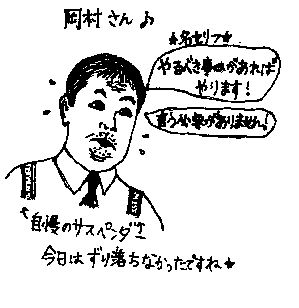 岡村さん♪
★名セリフ★
やるべき事があれば
やります!
言う必要がありません!
自慢のサスペンダー
今日はずり落ちなかったですね★